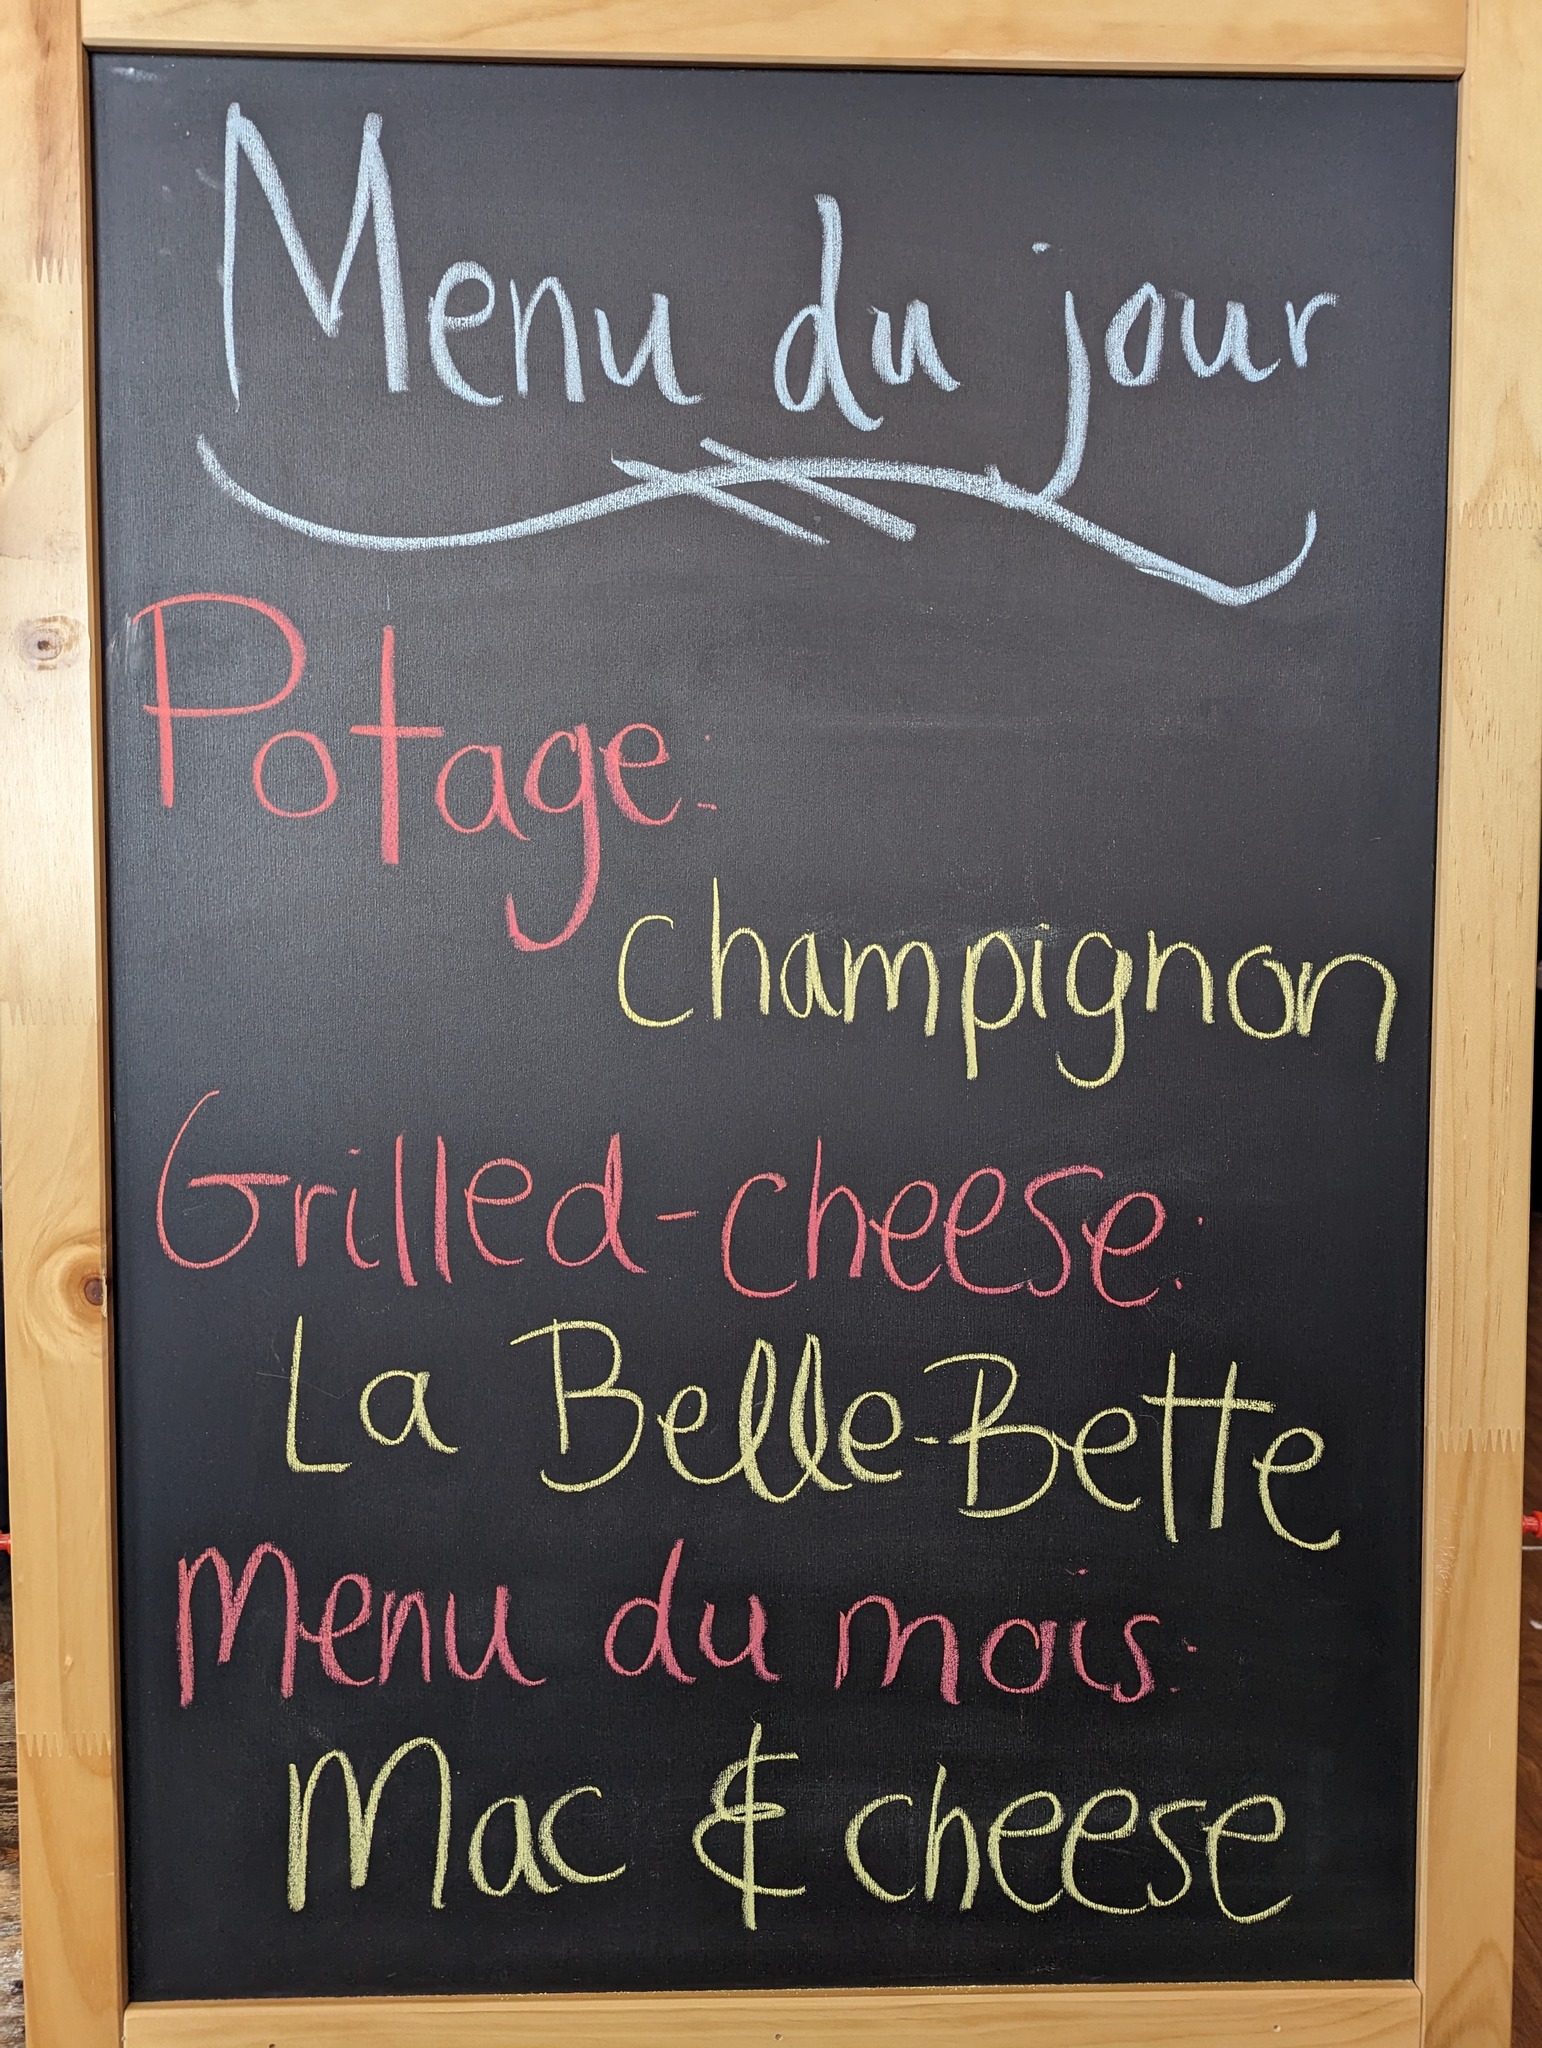 Menu du jour
Potage:
Champignon
Grilled-cheese:
La Belle-Bette
Menu du mois:
Mac & cheese